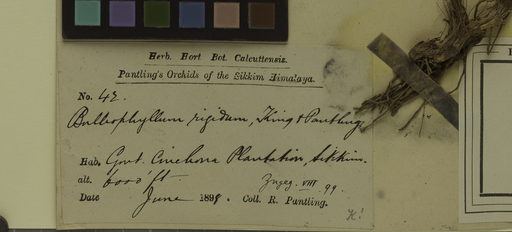 Herb. Hort Bot. Calcuttensis.
Pantling's Orchids of the Sikkim Himalaya.
No. 42.
Bulbophyllum rigidum, King & Pantling
Hab. Govt. Cinchona Plantation, Sikkim.
alt. 6000 ft
Zugeg. VIII 99.
Date June 1898. Coll. R. Pantling.
K!